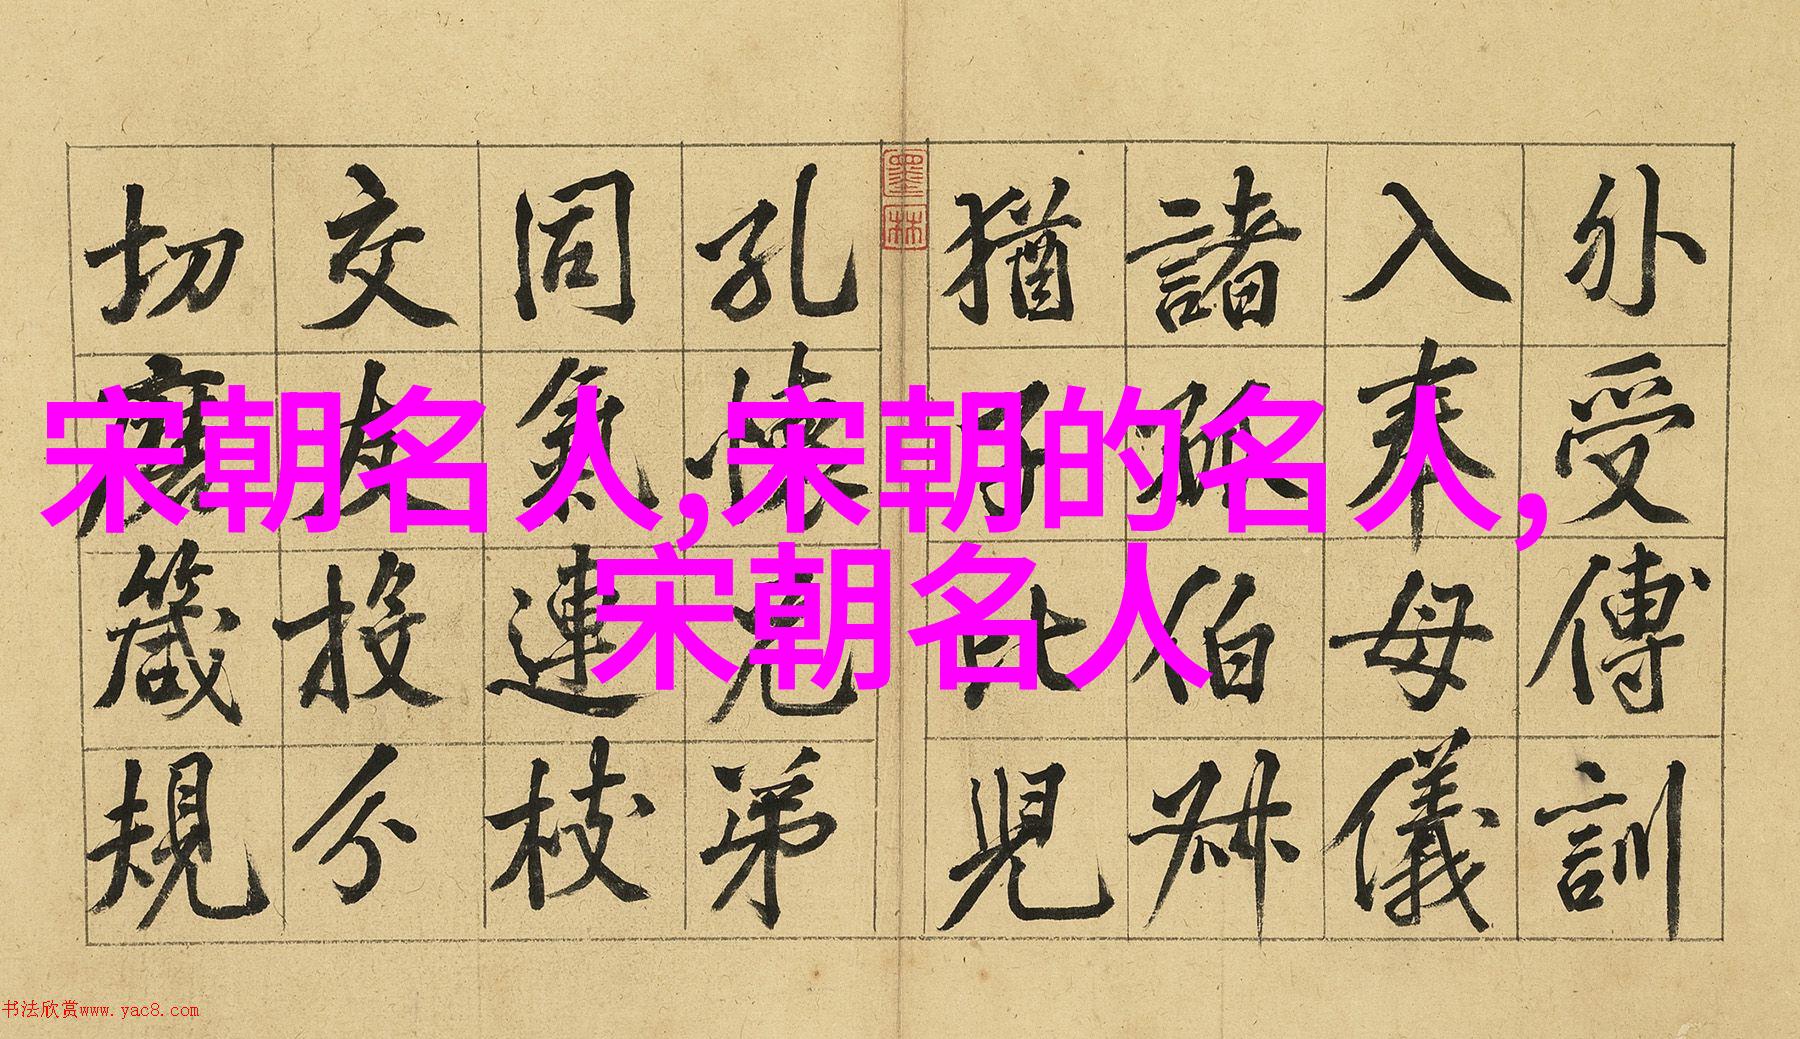 外受傅訓
入奉母儀
諸姑伯叔
猶子比兒
墨林
孔懷兄弟
同氣連枝
交友投分
切磨箴規
宋朝名人,宋朝的名人,
宋朝名人
书法欣赏www.yac8.com